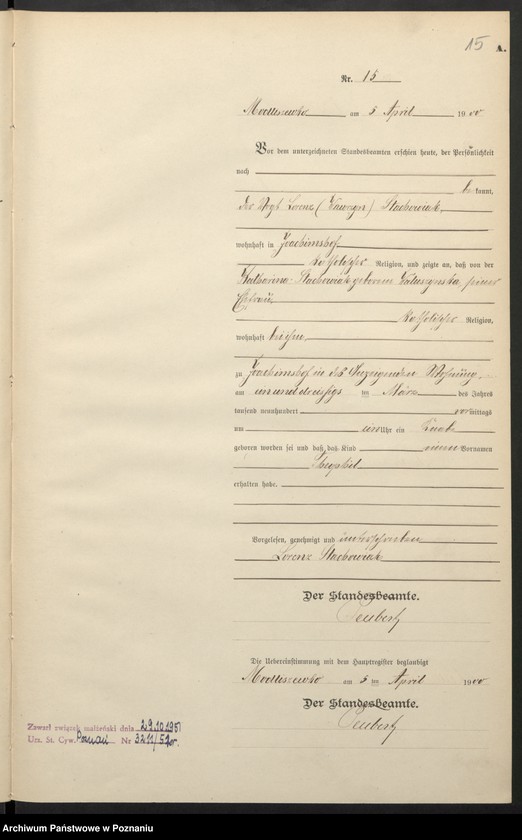 15
A.
Nr. 15
Modliszewko am 5 April 1900
Vor dem unterzeichneten Standesbeamten erschien heute, der Persönlichkeit
nach
bekannt,
der Vogt Lorenz (Wawrzyn) Stachowiak,
wohnhaft in Joachimshof
katholischer Religion, und zeigte an, daß von der
Katharina Stachowiak geborene seiner
Ehefrau,
katholischer Religion,
wohnhaft bei ihm,
zu Joachimshof in des Anzeigenden Wohnung,
am einunddreißigs ten März des Jahres
tausend neunhundert vormittags
um ein Uhr ein Knabe
geboren worden sei und daß das Kind einen Vornamen
Theophil
erhalten habe.
Vorgelesen, genehmigt und unterschrieben
Lorenz Stachowiak
Der Standesbeamte.
Die Uebereinstimmung mit dem Hauptregister beglaubigt
Modliszewko am 5 ten April 1900
Der Standesbeamte.
Zawarł związek małżeński dnia 29.10.1951
Urz. St. Cyw. Poznań Nr 3211/51r.
Archiwum Państwowe w Poznaniu